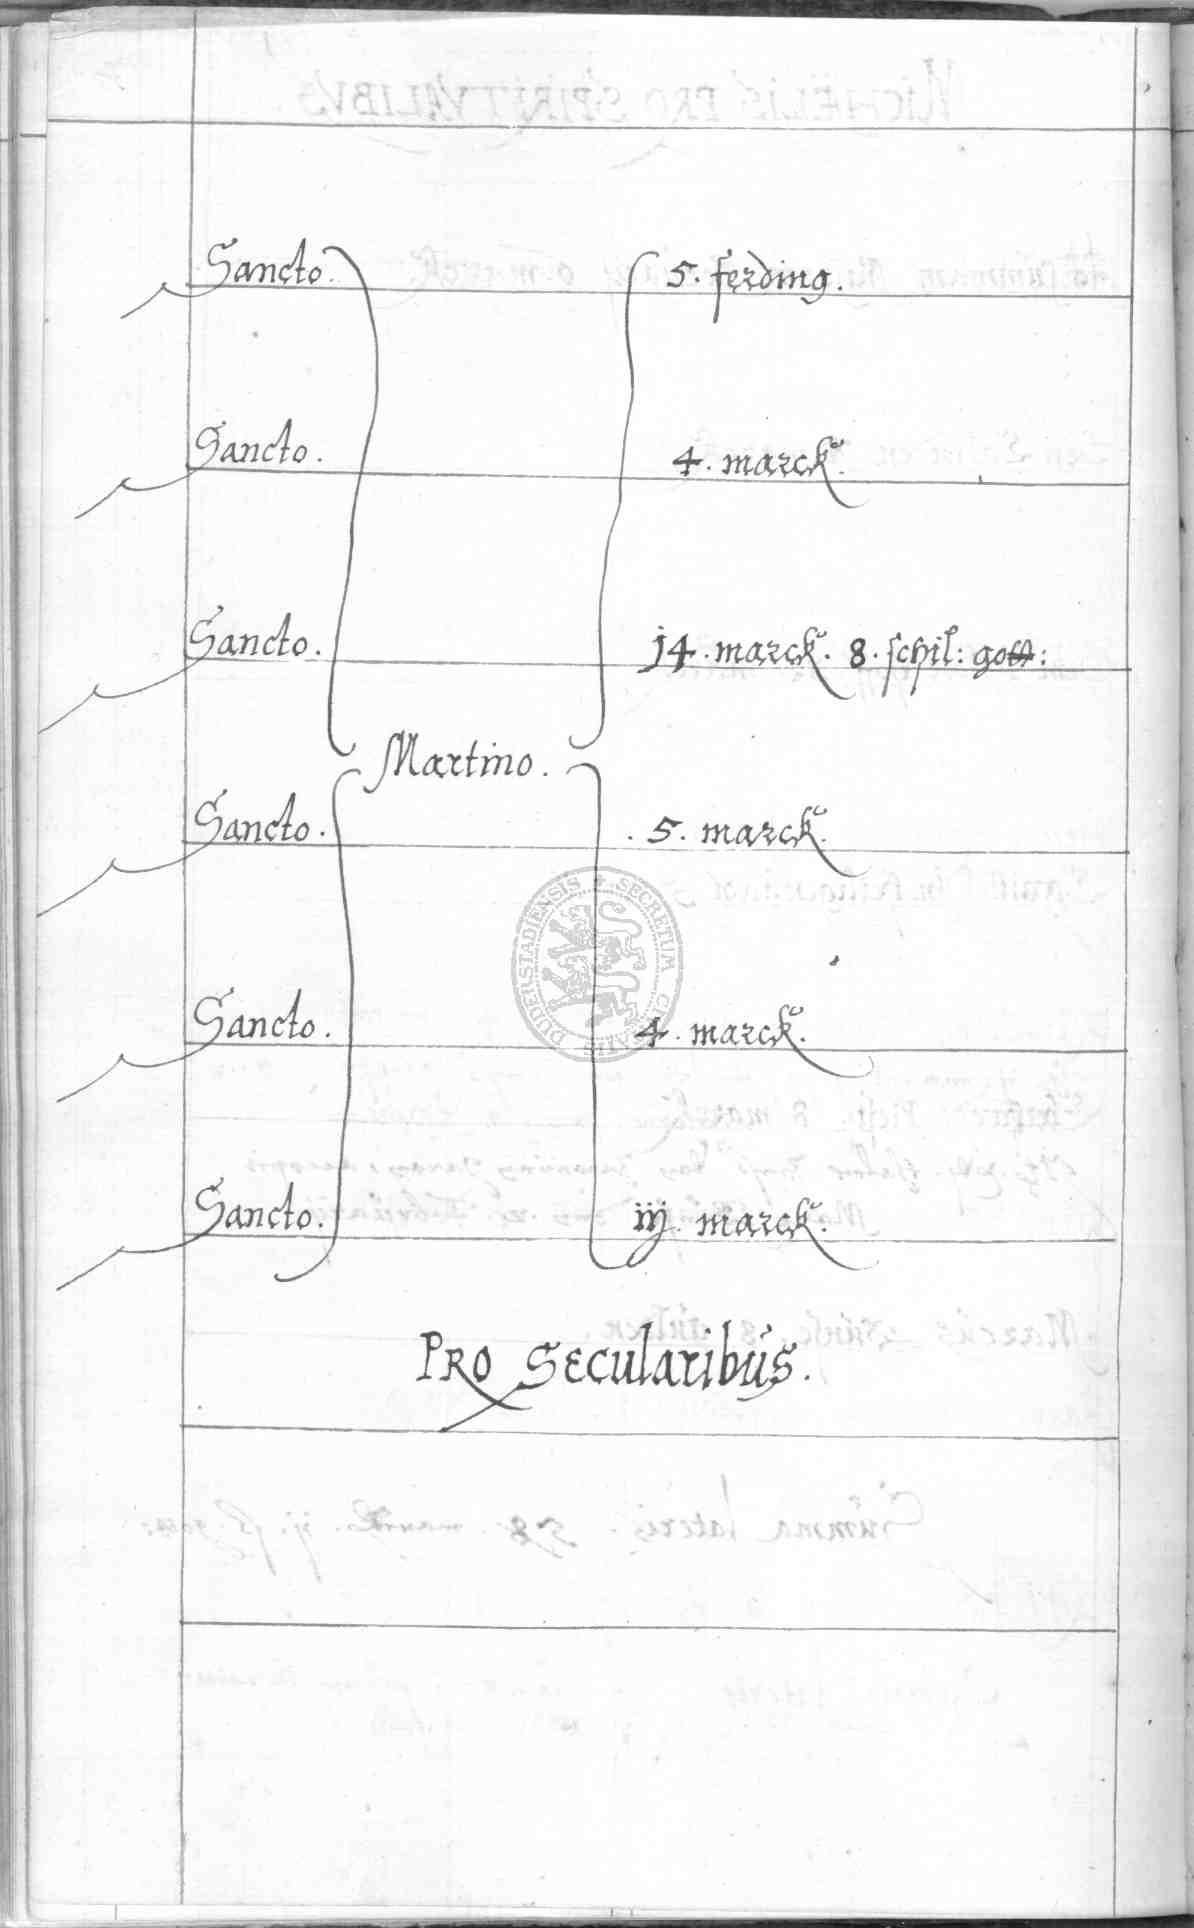 Sancto. 5. ferding.
Sancto. 4. marck.
Sancto. 14. marck. 8. schil: gott:
Martino.
Sancto. 5. marck.
SECRETUM CIVITATIS DUDERSTADIENSIS
Sancto. 4. marck.
Sancto. iij. marck.
PRO SECULARIBUS.